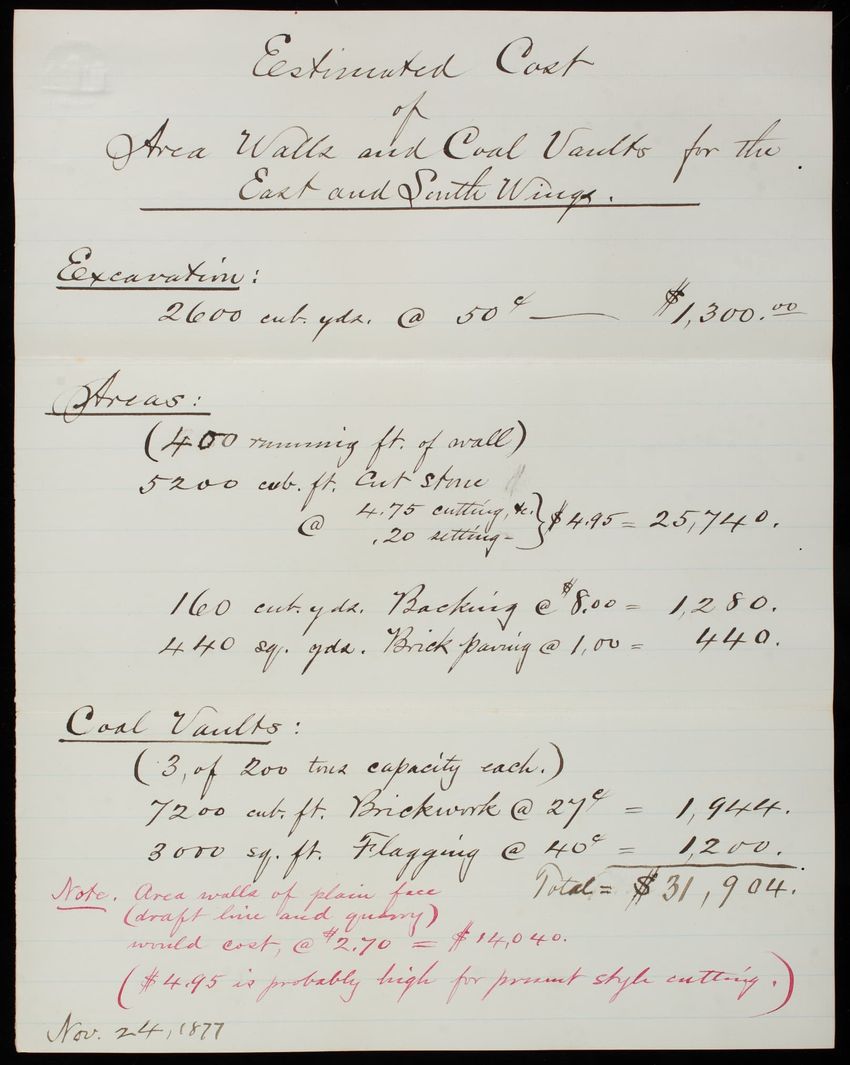 Estimated Cost
of
Area Walls and Coal Vaults for the
East and South Wings.
Excavation:
2600 cub. yds. @ 50¢ — $1,300.00
Areas:
(400 running ft. of wall)
5200 cub. ft. Cut stone
@ 4.75 cutting, &c. } $4.95 = 25,740.
.20 setting -
160 cub. yds. Backing @ $8.00 = 1,280.
440 sq. yds. Brick paving @ 1,00 = 440.
Coal Vaults:
(3, of 200 tons capacity each.)
7200 cub. ft. Brickwork @ 27¢ = 1,944.
3000 sq. ft. Flagging @ 40¢ = 1,200.
Total = $31,904.
Note. Area walls of plain face
(draft line and quarry)
would cost, @ $2.70 = $14,040.
($4.95 is probably high for present style cutting.)
Nov. 24, 1877